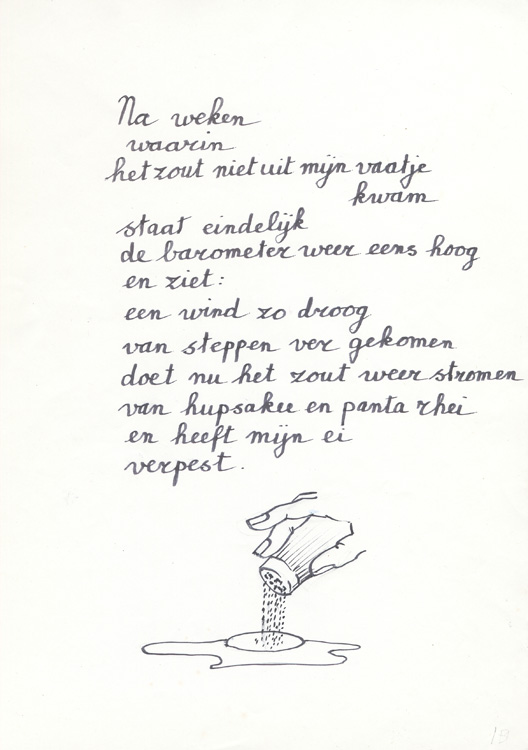 Na weken
waarin
het zout niet uit mijn vaatje
kwam
staat eindelijk
de barometer weer eens hoog
en ziet:
een wind zo droog
van steppen ver gekomen
doet nu het zout weer stromen
van hupsakee en panta rhei
en heeft mijn ei
verpest.
19